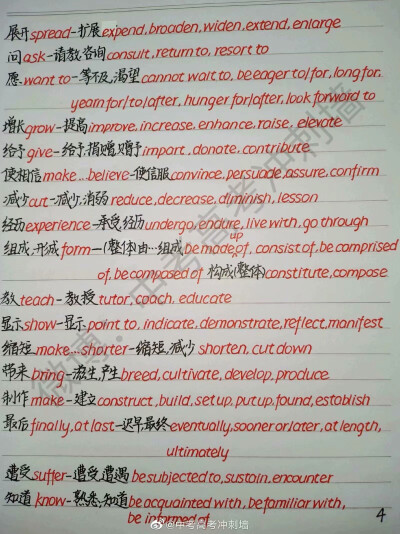 展开spread-扩展expend, broaden, widen, extend, enlarge
问ask-请教,咨询consult, return to, resort to
愿want to-等不及,渴望cannot wait to, be eager to/for, long for,
yearn for/to/after, hunger for/after, look forward to
增长grow-提高improve, increase, enhance, raise, elevate
给予give-给予,捐赠,赠予impart, donate, contribute
使相信make...believe-使信服convince, persuade, assure, confirm
减少cut-减少,消弱reduce, decrease, diminish, lesson
经历experience-承受,经历undergo, endure, live with, go through
组成,形成form-(整体)由…组成be made up of, consist of, be comprised
of, be composed of 构成(整体)constitute, compose
教teach-教授tutor, coach, educate
显示show-显示point to, indicate, demonstrate, reflect, manifest
缩短make...shorter-缩短,减少shorten, cut down
带来bring-滋生,产生breed, cultivate, develop, produce
制作make-建立construct, build, set up, put up, found, establish
最后finally, at last-迟早,最终eventually, sooner or later, at length,
ultimately
遭受suffer-遭受,遭遇be subjected to, sustain, encounter
知道know-熟悉,知道be acquainted with, be familiar with,
be informed of
4
微博:中考高考冲刺墙
@中考高考冲刺墙